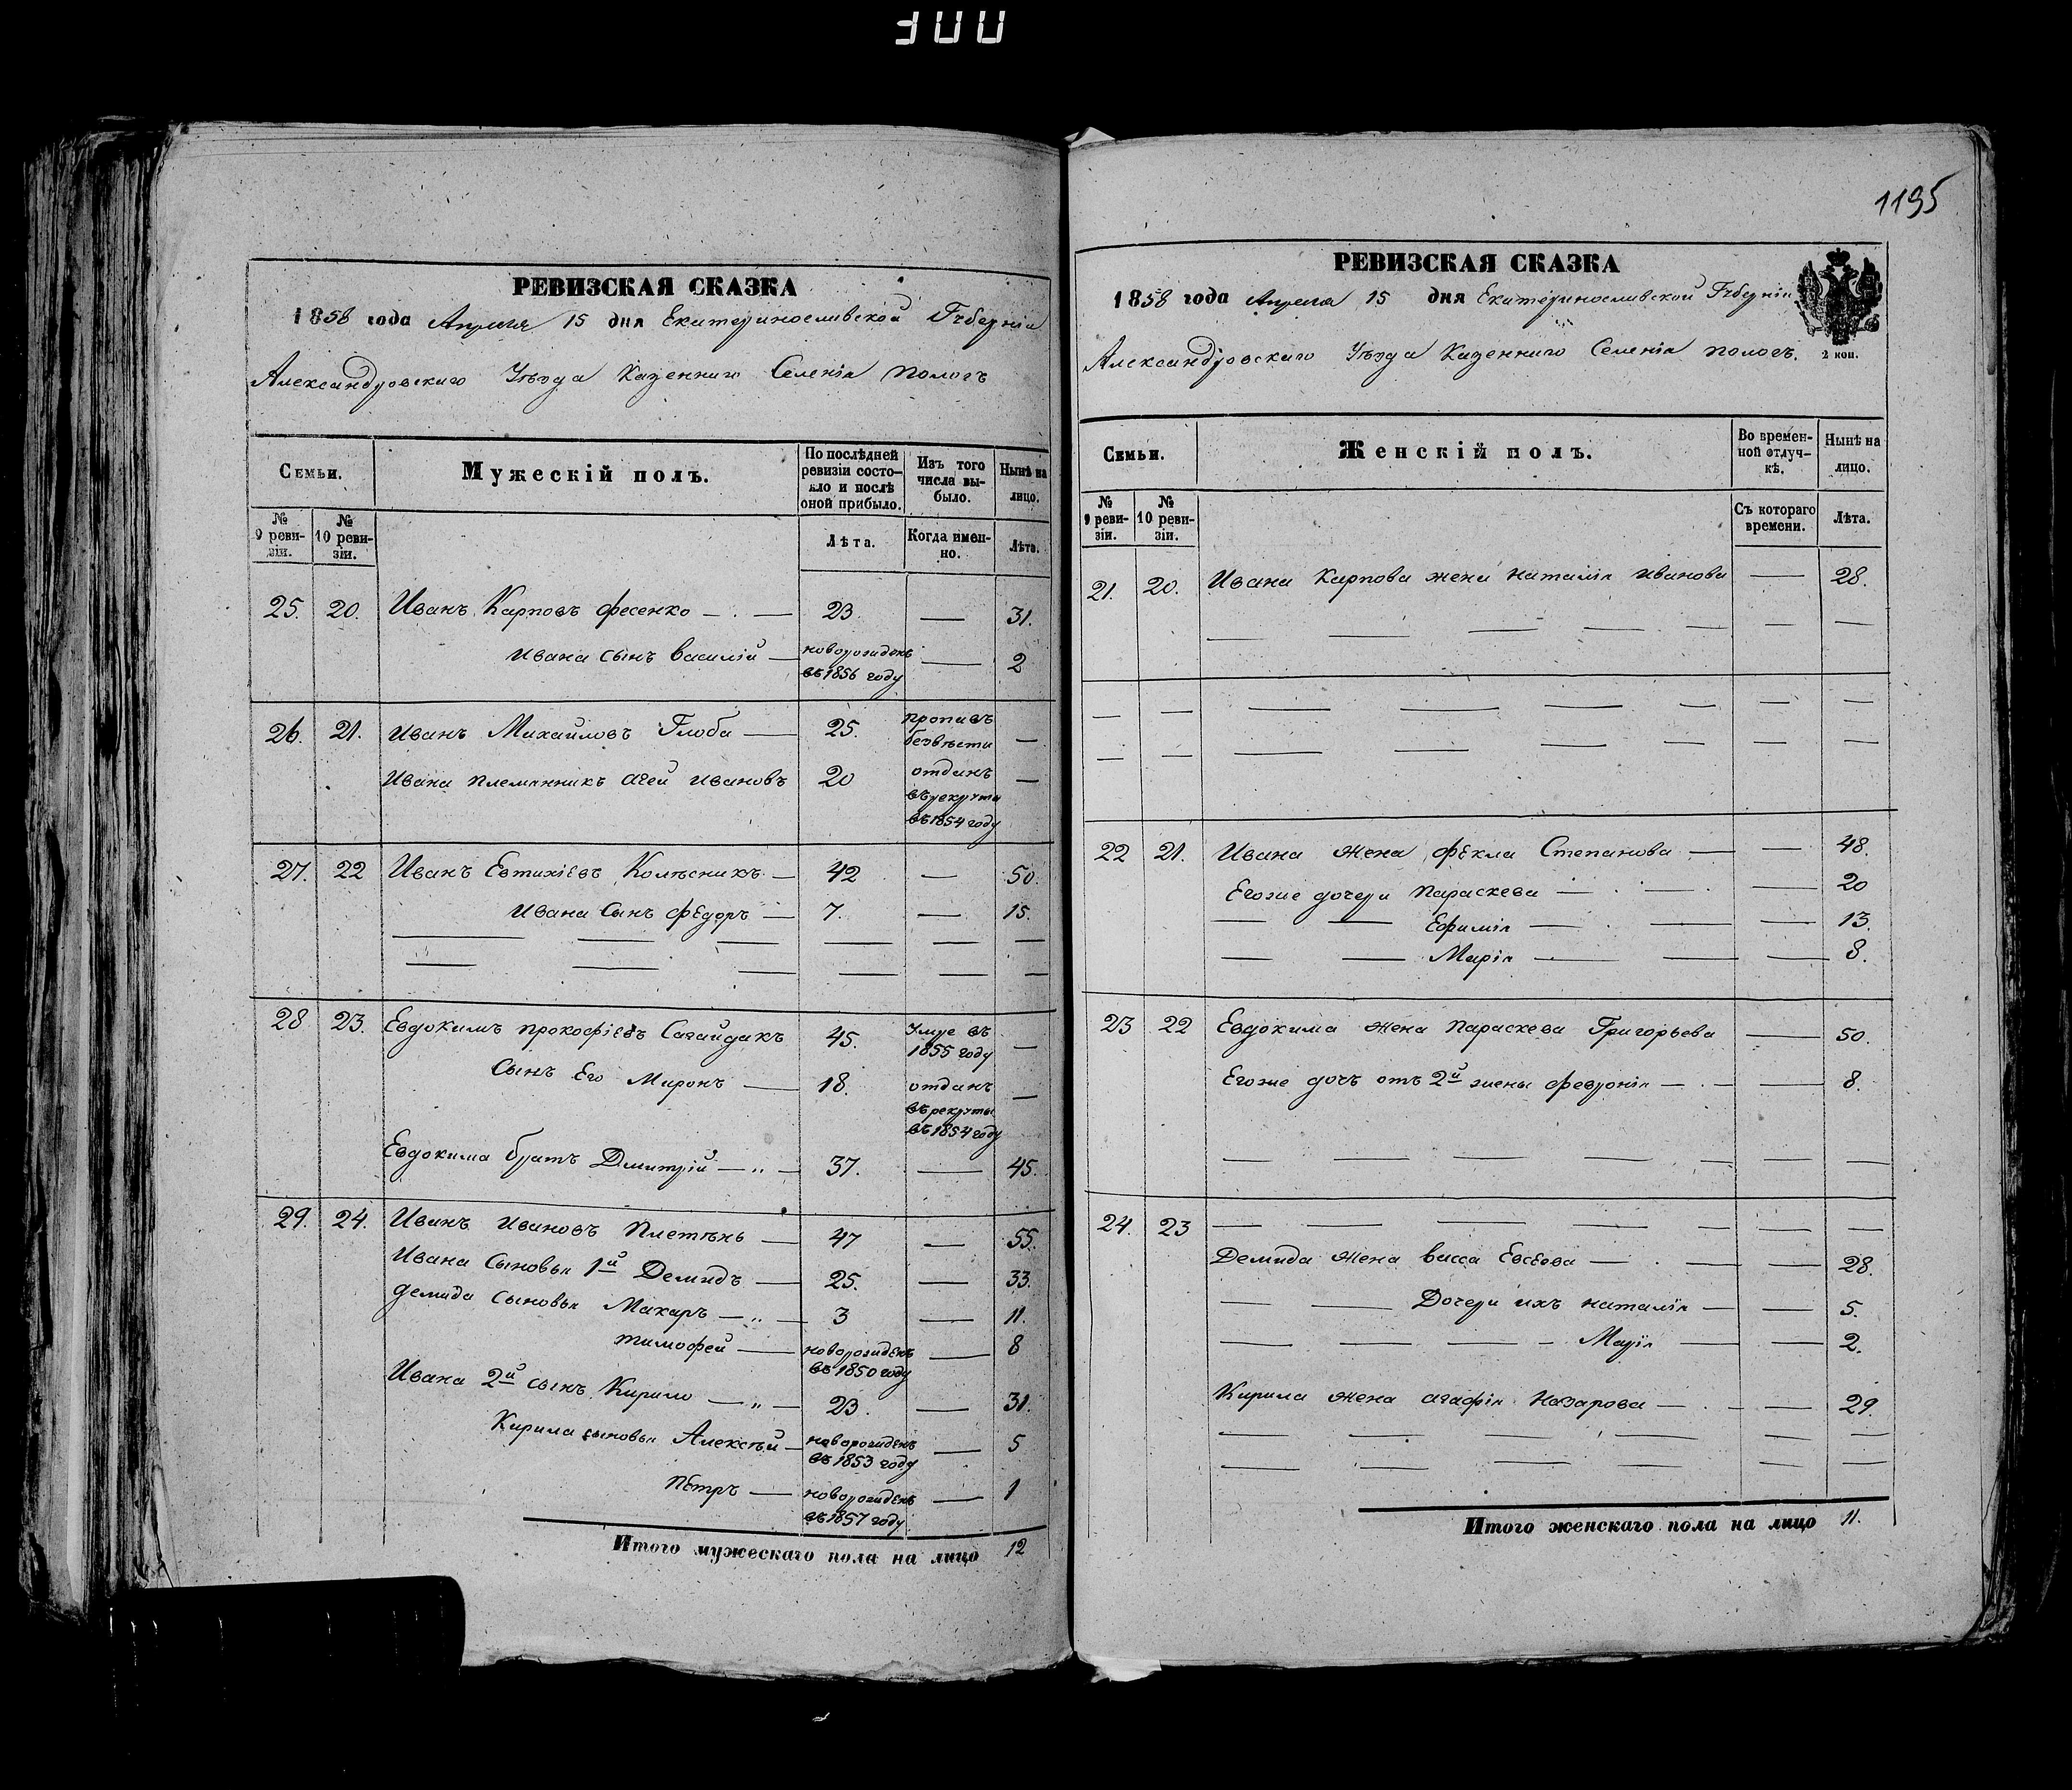 300
РЕВИЗСКАЯ СКАЗКА
1858 года Апреля 15 дня Екатеринославской Губерніи
Александровскаго Уѣзда Казеннаго Селенія Пологъ
Семьи.
Мужескій полъ.
По послѣдней ревизіи состояло и послѣ оной прибыло.
Изъ того числа выбыло.
Нынѣ на лицо.
№ 9 ревизіи.
№ 10 ревизіи.
Лѣта.
Когда именно.
Лѣта.
25. 20. Иванъ Карповъ Фесенко — 23. — 31.
Ивана сынъ Василій — новорожденъ въ 1856 году — 2
26. 21. Иванъ Михайловъ Глоба — 25. пропавъ безвѣсти —
Ивана племянникъ Агей Ивановъ 20 отданъ въ рекруты въ 1854 году —
27. 22 Иванъ Евтихіевъ Колѣсникъ — 42 — 50.
Ивана Сынъ Федоръ — 7. — 15.
28 23. Евдокимъ Прокофіевъ Сагайдакъ 45. Умре въ 1855 году —
Сынъ Его Миронъ — 18. отданъ въ рекруты въ 1854 году —
Евдокима братъ Дмитрій — „ — 37. — 45.
29. 24. Иванъ Ивановъ Плетѣнь — 47 — 55.
Ивана Сыновья 1й Демидъ — 25. — 33.
Демида сыновья Макаръ — „ — 3 — 11.
Тимофей — новорожденъ въ 1850 году — 8
Ивана 2й сынъ Кирило — „ — 23. — 31.
Кирила сыновья Алексѣй — новорожденъ въ 1853 году — 5
Петръ — новорожденъ въ 1857 году — 1
Итого мужескаго пола на лицо 12
1195
РЕВИЗСКАЯ СКАЗКА
1858 года Апреля 15 дня Екатеринославской Губерніи
Александровскаго Уѣзда Казеннаго Селенія Пологъ.
2 коп.
Семьи.
Женскій полъ.
Во временной отлучкѣ.
Нынѣ на лицо.
№ 9 ревизіи.
№ 10 ревизіи.
Съ котораго времени.
Лѣта.
21. 20. Ивана Карпова жена Наталія Иванова — 28.
22 21. Ивана жена Фекла Степанова — — 48.
Егоже дочери Параскева — — 20
Ефимія — — 13.
Марія — — 8.
23 22 Евдокима жена Параскева Григорьева — 50.
Егоже дочъ отъ 2й жены Февронія — — 8.
24. 23
Демида жена Васса Евсеева — — 28.
Дочери ихъ Наталія — — 5.
Марія — — 2.
Кирила жена Агафія Назарова — — 29.
Итого женскаго пола на лицо 11.